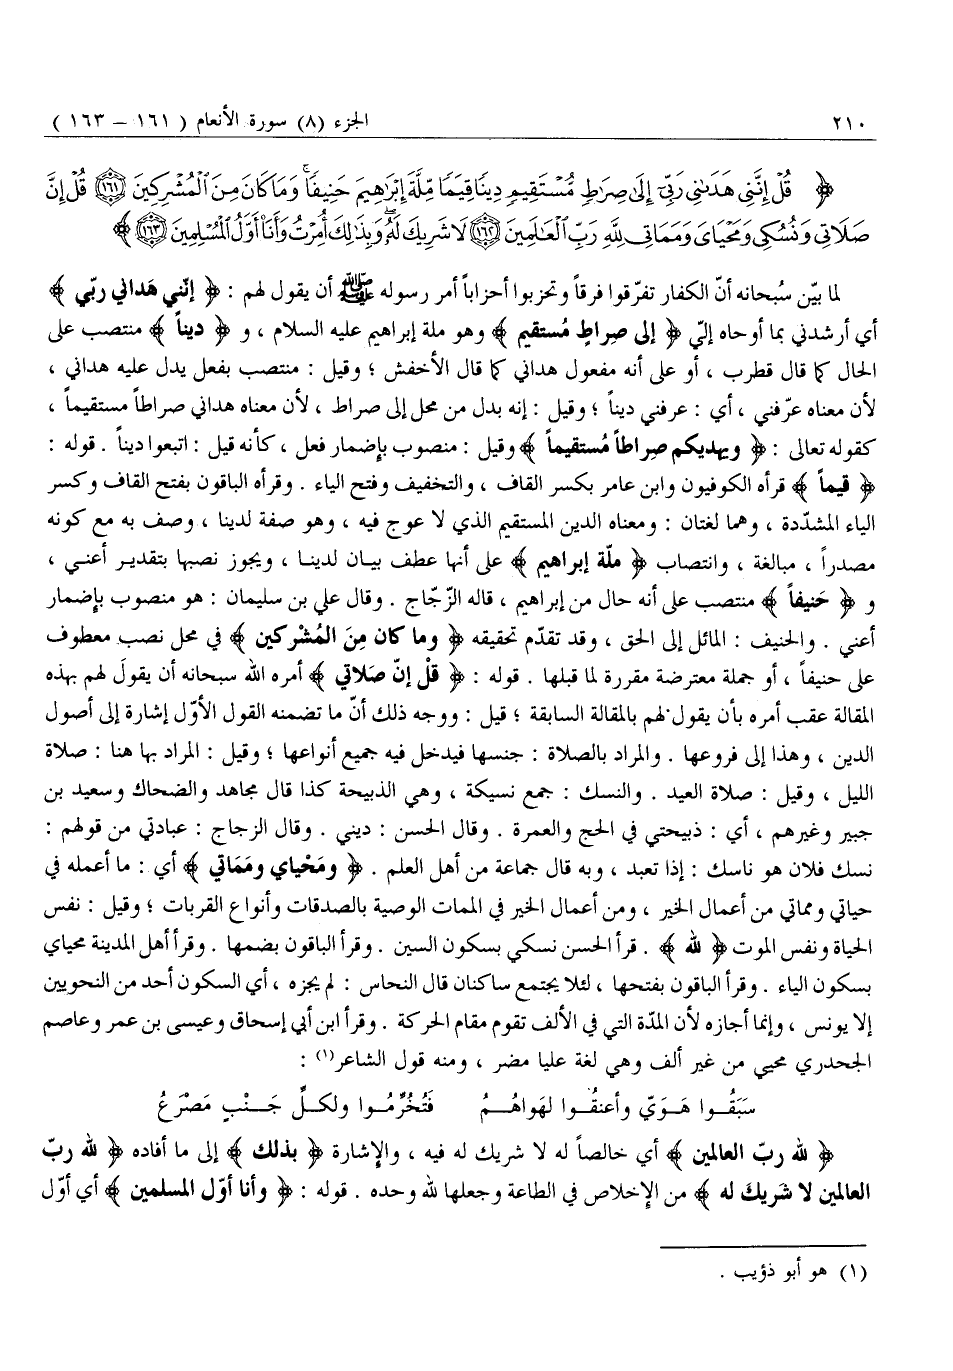 ٢١٠
الجزء (٨) سورة الأنعام ( ١٦١ – ١٦٣ )
﴿ قُلْ إِنَّنِي هَدَىٰنِي رَبِّيٓ إِلَىٰ صِرَٰطٍ مُّسْتَقِيمٍ دِينًا قِيَمًا مِّلَّةَ إِبْرَٰهِيمَ حَنِيفًا ۚ وَمَا كَانَ مِنَ ٱلْمُشْرِكِينَ ١٦١ قُلْ إِنَّ
صَلَاتِي وَنُسُكِي وَمَحْيَايَ وَمَمَاتِي لِلَّهِ رَبِّ ٱلْعَٰلَمِينَ ١٦٢ لَا شَرِيكَ لَهُۥ ۖ وَبِذَٰلِكَ أُمِرْتُ وَأَنَا۠ أَوَّلُ ٱلْمُسْلِمِينَ ١٦٣ ﴾
لما بيّن سُبحانه أنّ الكفار تفرّقوا فرقاً وتحزبوا أحزاباً أمر رسوله ﷺ أن يقول لهم : ﴿ إنّني هَداني ربّي ﴾
أي أرشدني بما أوحاه إليّ ﴿ إلى صِراطٍ مُستقيم ﴾ وهو ملة إبراهيم عليه السلام ، و ﴿ ديناً ﴾ منتصب على
الحال كما قال قطرب ، أو على أنه مفعول هداني كما قال الأخفش ؛ وقيل : منتصب بفعل يدل عليه هداني ،
لأن معناه عرّفني ، أي : عرفني ديناً ؛ وقيل : إنه بدل من محل إلى صراط ، لأن معناه هداني صراطاً مستقيماً ،
كقوله تعالى : ﴿ ويهديكم صِراطاً مُستقيماً ﴾ وقيل : منصوب بإضمار فعل ، كأنه قيل : اتبعوا ديناً . قوله :
﴿ قيماً ﴾ قرأه الكوفيون وابن عامر بكسر القاف ، والتخفيف وفتح الياء . وقرأه الباقون بفتح القاف وكسر
الياء المشدّدة ، وهما لغتان : ومعناه الدين المستقيم الذي لا عوج فيه ، وهو صفة لدينا ، وصف به مع كونه
مصدراً ، مبالغة ، وانتصاب ﴿ ملّة إبراهيم ﴾ على أنها عطف بيان لدينا ، ويجوز نصبها بتقدير أعني ،
و ﴿ حَنيفاً ﴾ منتصب على أنه حال من إبراهيم ، قاله الزّجّاج . وقال علي بن سليمان : هو منصوب بإضمار
أعني . والحنيف : المائل إلى الحق ، وقد تقدّم تحقيقه ﴿ وما كان مِنَ المُشْركين ﴾ في محل نصب معطوف
على حنيفاً ، أو جملة معترضة مقررة لما قبلها . قوله : ﴿ قُلْ إنّ صَلاتي ﴾ أمره الله سبحانه أن يقول لهم بهذه
المقالة عقب أمره بأن يقول لهم بالمقالة السابقة ؛ قيل : ووجه ذلك أنّ ما تضمنه القول الأوّل إشارة إلى أصول
الدين ، وهذا إلى فروعها . والمراد بالصلاة : جنسها فيدخل فيه جميع أنواعها ؛ وقيل : المراد بها هنا : صلاة
الليل ، وقيل : صلاة العيد . والنسك : جمع نسيكة ، وهي الذبيحة كذا قال مجاهد والضحاك وسعيد بن
جبير وغيرهم ، أي : ذبيحتي في الحج والعمرة . وقال الحسن : ديني . وقال الزجاج : عبادتي من قولهم :
نسك فلان هو ناسك : إذا تعبد ، وبه قال جماعة من أهل العلم . ﴿ ومَحْياي ومَمَاتي ﴾ أي : ما أعمله في
حياتي ومماتي من أعمال الخير ، ومن أعمال الخير في الممات الوصية بالصدقات وأنواع القربات ؛ وقيل : نفس
الحياة ونفس الموت ﴿ لله ﴾ . قرأ الحسن نسكي بسكون السين . وقرأ الباقون بضمها . وقرأ أهل المدينة محياي
بسكون الياء . وقرأ الباقون بفتحها ، لئلا يجتمع ساكنان قال النحاس : لم يجزه ، أي السكون أحد من النحويين
إلا يونس ، وإنما أجازه لأن المدّة التي في الألف تقوم مقام الحركة . وقرأ ابن أبي إسحاق وعيسى بن عمر وعاصم
الجحدري محيي من غير ألف وهي لغة عليا مضر ، ومنه قول الشاعر(١) :
سَبَقُوا هَوَيّ وأعنقُوا لهَواهُمُ فَتُخُرِّمُوا ولكلِّ جَنْبٍ مَصْرَعُ
﴿ لله ربّ العالمين ﴾ أي خالصاً له لا شريك له فيه ، والإشارة ﴿ بذلك ﴾ إلى ما أفاده ﴿ لله ربّ
العالمين لا شَريكَ له ﴾ من الإخلاص في الطاعة وجعلها لله وحده . قوله : ﴿ وأنا أوّل المسلمين ﴾ أي أوّل
(١) هو أبو ذؤيب .